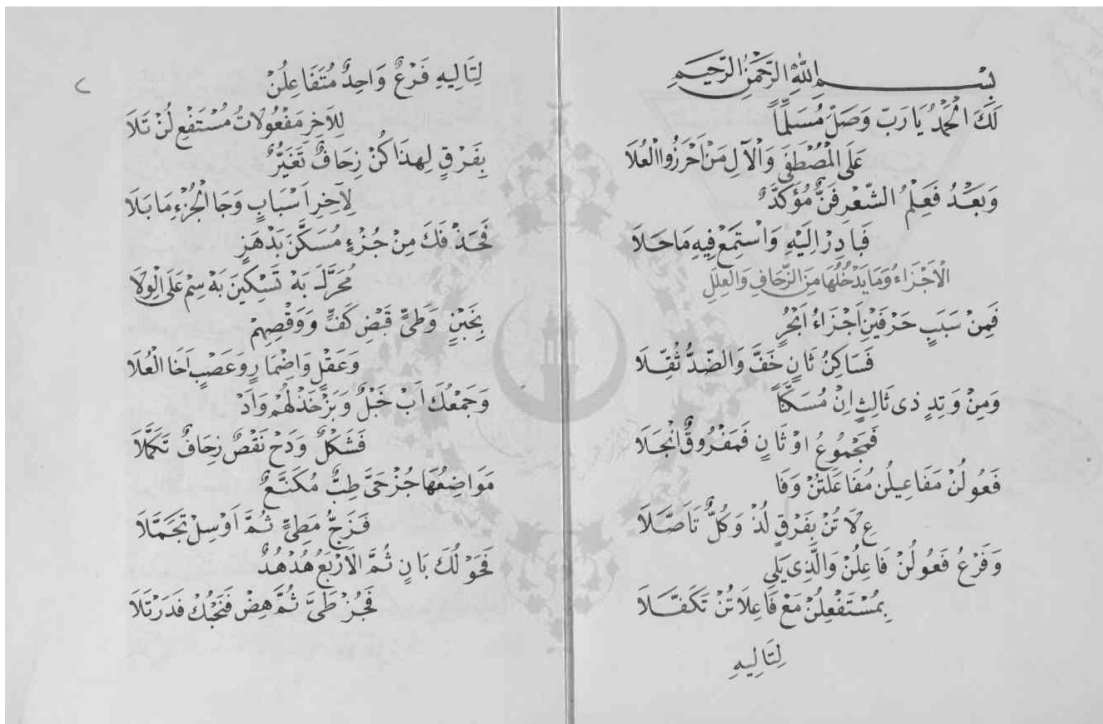 بِسْمِ اللهِ الرَّحْمٰنِ الرَّحِيمِ
لَكَ الْحَمْدُ يَا رَبِّ وَصَلِّ مُسَلِّمًا
عَلَى الْمُصْطَفَى وَالْآلِ مَنْ أَحْرَزُوا الْعُلَا
وَبَعْدُ فَعِلْمُ الشِّعْرِ فَنٌّ مُؤَكَّدٌ
فَبَادِرْ إِلَيْهِ وَاسْتَمِعْ فِيهِ مَا حَلَا
الْأَجْزَاءُ وَمَا يَدْخُلُهَا مِنَ الزِّحَافِ وَالْعِلَلِ
فَمِنْ سَبَبٍ حَرْفَيْنِ أَجْزَاءُ أَبْحُرٍ
فَسَاكِنُ ثَانٍ خَفَّ وَالضِّدُّ ثُقِّلَا
وَمِنْ وَتِدٍ ذِى ثَالِثٍ إِنْ مُسَكَّنًا
فَمَجْمُوعُ اوْ ثَانٍ فَمَفْرُوقٌ انْجَلَا
فَعُولُنْ مَفَاعِيلُن مُفَاعَلَتُنْ وَفَا
عِ لَاتُنْ بِفَرْقٍ لُذْ وَكُلٌّ تَأَصَّلَا
وَفَرْعُ فَعُولُنْ فَاعِلُنْ وَالَّذِى يَلِى
بِمُسْتَفْعِلُنْ مَعْ فَاعِلَاتُنْ تَكَفَّلَا
لِتَالِيهِ
٢
لِتَالِيهِ فَرْعٌ وَاحِدٌ مُتَفَاعِلُنْ
لِلَآخِرِ مَفْعُولَاتُ مُسْتَفْعِ لُنْ تَلَا
بِفَرْقٍ لِهذَا كُنْ زِحَافٌ تَغَيُّرٌ
لِآخِرِ اَسْبَابٍ وَجَا الْجُزْءِ مَا بَلَا
فَحَذْفُكَ مِنْ جُزْءٍ مُسَكَّنَ بَدْهَزٍ
مُحَرَّكَ بَهْ تَسْكِينَ بَهْ سِمْ عَلَى الْوِلَا
بِخَبْنٍ وَطَيٍّ قَبْضِ كَفٍّ وَوَقْصِهِمْ
وَعَقْلٍ وَاضْمَارٍ وَعَصْبٍ اَخَا الْعُلَا
وَجَمْعُكَ اَبْ خَبْلٌ وَبَزْ خَذْلُهُمْ وَاَدْ
فَشَكْلٌ وَدَحْ نَقْصٌ زِحَافٌ تَكَمَّلَا
مَوَاضِعُهَا جُزْ حَيَّ طِبٌّ مُكَنَّعٌ
فَزَجُّ مَطِيٍّ ثُمَّ اَوْسِلْ تَجَمَّلَا
فَحَوْلُكَ بَانٍ ثُمَّ الَارْبَعُ هُدْهُدٌ
فَجُزْ طَيَّ ثُمَّ هِضْ